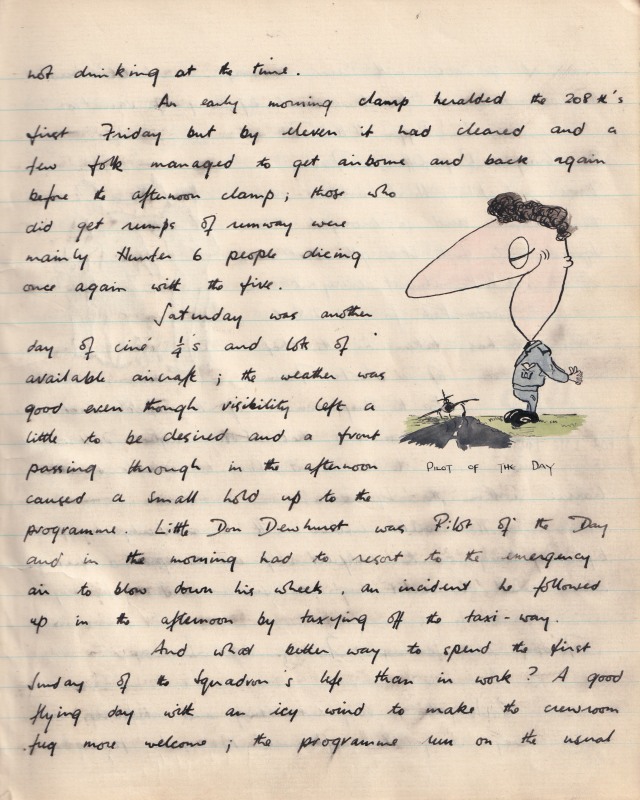 not drinking at the time.
An early morning clamp heralded the 208th's
first Friday but by eleven it had cleared and a
few folk managed to get airborne and back again
before the afternoon clamp; those who
did get rumps of runway were
mainly Hunter 6 people dicing
once again with the five.
Saturday was another
day of ciné ¼'s and lots of
available aircraft; the weather was
good even though visibility left a
little to be desired and a front
passing through in the afternoon
caused a small hold up to the
programme. Little Don Dewhurst was Pilot of the Day
and in the morning had to resort to the emergency
air to blow down his wheels, an incident he followed
up in the afternoon by taxying off the taxi-way.
And what better way to spend the first
Sunday of the Squadron's life than in work? A good
flying day with an icy wind to make the crewroom
fug more welcome; the programme run on the usual
PILOT OF THE DAY